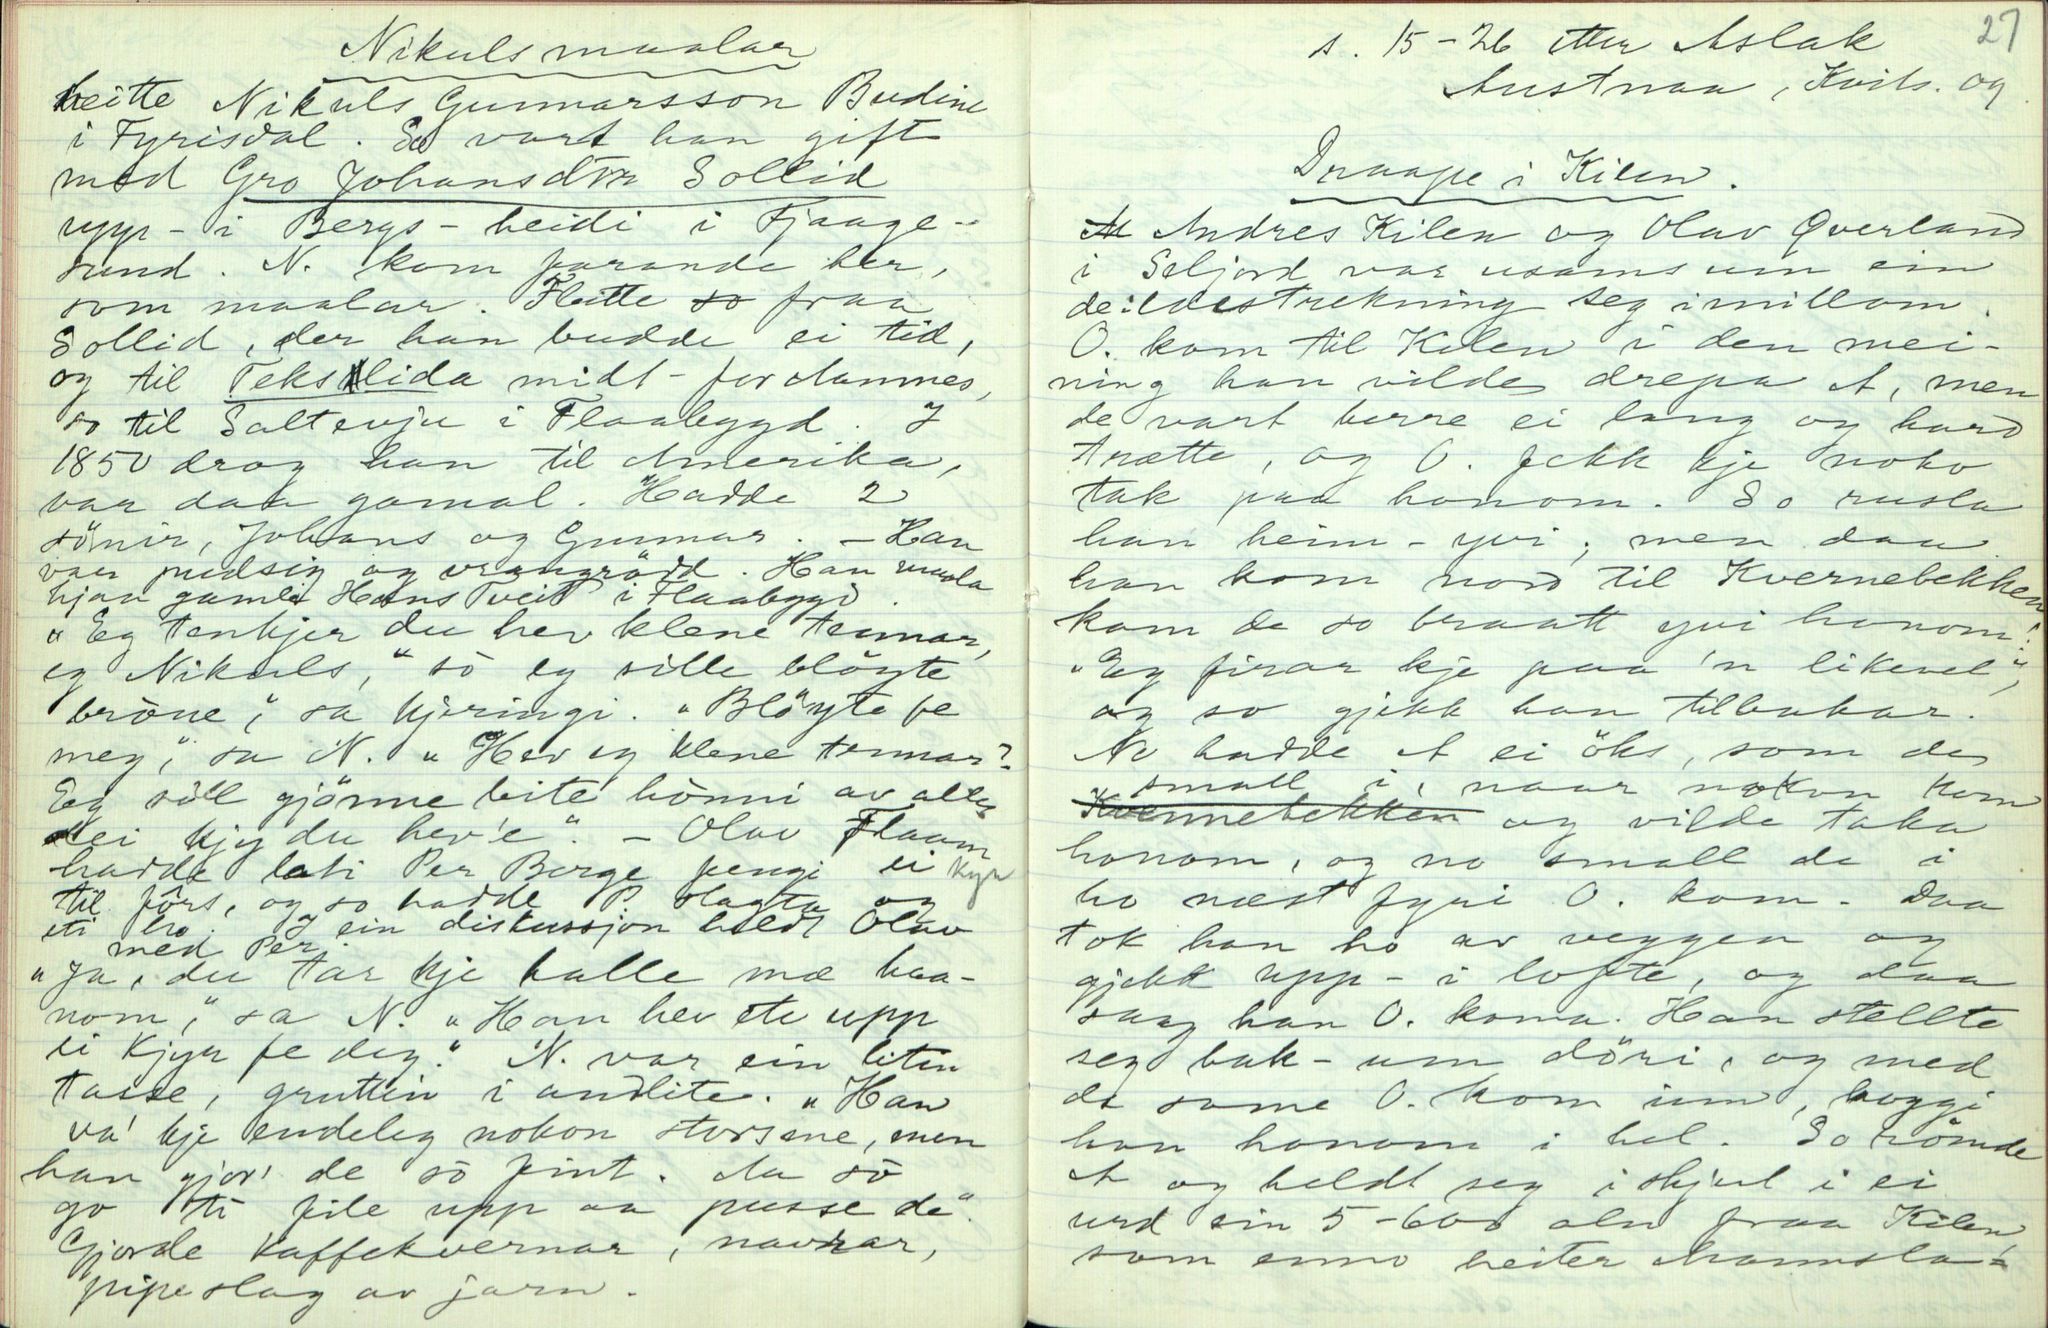 Nikuls maalar
heitte Nikuls Gunnarsson Budine
i Fyrisdal. So vart han gift
med Gro Johansdtr Sollid
upp-i Bergs-heidi i Fjaage-
sund. N. kom farande her,
som maalar. Flutte so fraa
Sollid, der han budde ei tid,
og til Tekslida midt-for Aamnes,
so til Saltevju i Flaabygd. I
1850 drog han til Amerika,
var daa gamal. Hadde 2
sönir, Johans og Gunnar. - Han
var pudsig og vrangrödd. Han maala
hjaa gamle Hans Tveit i Flaabygd.
"Eg tenkjer du hev klene tennar,
eg Nikuls," sò eg sille blöyte
bröne," sa kjeringi. "Blöyte fe
meg," sa N. "Hev eg klene tennar?
Eg sill gjönne bite hönni av alle
dei kjy du hev'e". - Olav Flaam
hadde lati Per Berge pengi ei kyr
til förs, og so hadde P. slagta og
eti ho. I ein diskussjon heldt Olav
med Per.
"Ja, du tar kje halle mæ haa-
nom," sa N. "Han hev ete upp
ei kjyr fe deg." N. var ein liten
tasse, gruttin i andlite. "Han
va' kje endeleg nokon storsme, men
han gjor' de sò fint. Au sò
go ti file upp aa pusse de".
Gjorde kaffekvernar, navrar,
pipeslag av jarn.
27
s. 15-26 etter Aslak
Austnaa, Kvits. og
Draape i Kilen.
Andres Kilen og Olav Qverland
i Seljord var usams um ein
deildestrekning seg imillom.
O. kom til Kilen i den mei-
ning han vilde drepa A, men
de vart berre ei lang og hard
trætte, og O. fekk kje noko
tak paa honom. So rusla
han heim-yvi; men daa
han kom nord til Kvernebekken
kom de so braatt yvi honom:
"Eg firar kje paa 'n likevel",
og so gjekk han tilbakar.
No hadde A ei öks, som de
small i, naar nokon kom
Kvennebekken og vilde taka
honom, og no small de i
ho næst fyri O. kom. Daa
tok han ho av veggen og
gjekk upp-i lofte, og daa
saag han O. koma. Han stellte
seg bak-um döri, og med
de same O. kom inn, hoggi
han honom i hel. So römde
A og heldt seg i skjul i ei
urd ein 5-600 aln fraa Kilen,
som enno heiter Mannsla-